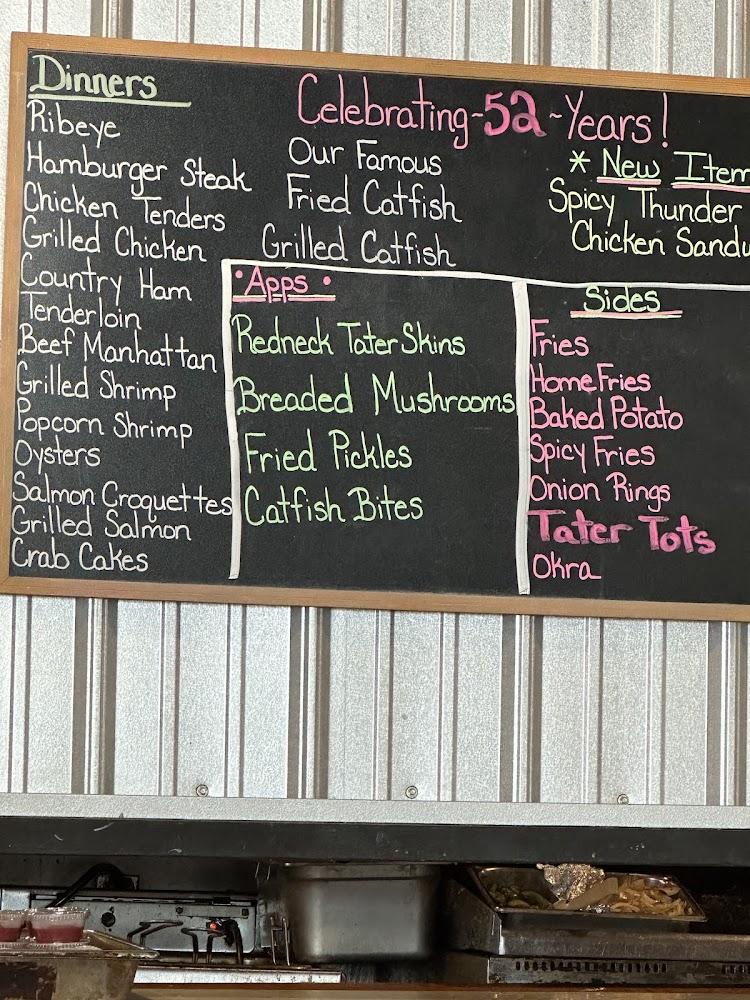 Dinners
Ribeye
Hamburger Steak
Chicken Tenders
Grilled Chicken
Country Ham
Tenderloin
Beef Manhattan
Grilled Shrimp
Popcorn Shrimp
Oysters
Salmon Croquettes
Grilled Salmon
Crab Cakes
Celebrating-52-Years!
Our Famous
Fried Catfish
Grilled Catfish
* New Item
Spicy Thunder
Chicken Sandw
• Apps •
Redneck Tater Skins
Breaded Mushrooms
Fried Pickles
Catfish Bites
Sides
Fries
Home Fries
Baked Potato
Spicy Fries
Onion Rings
Tater Tots
Okra